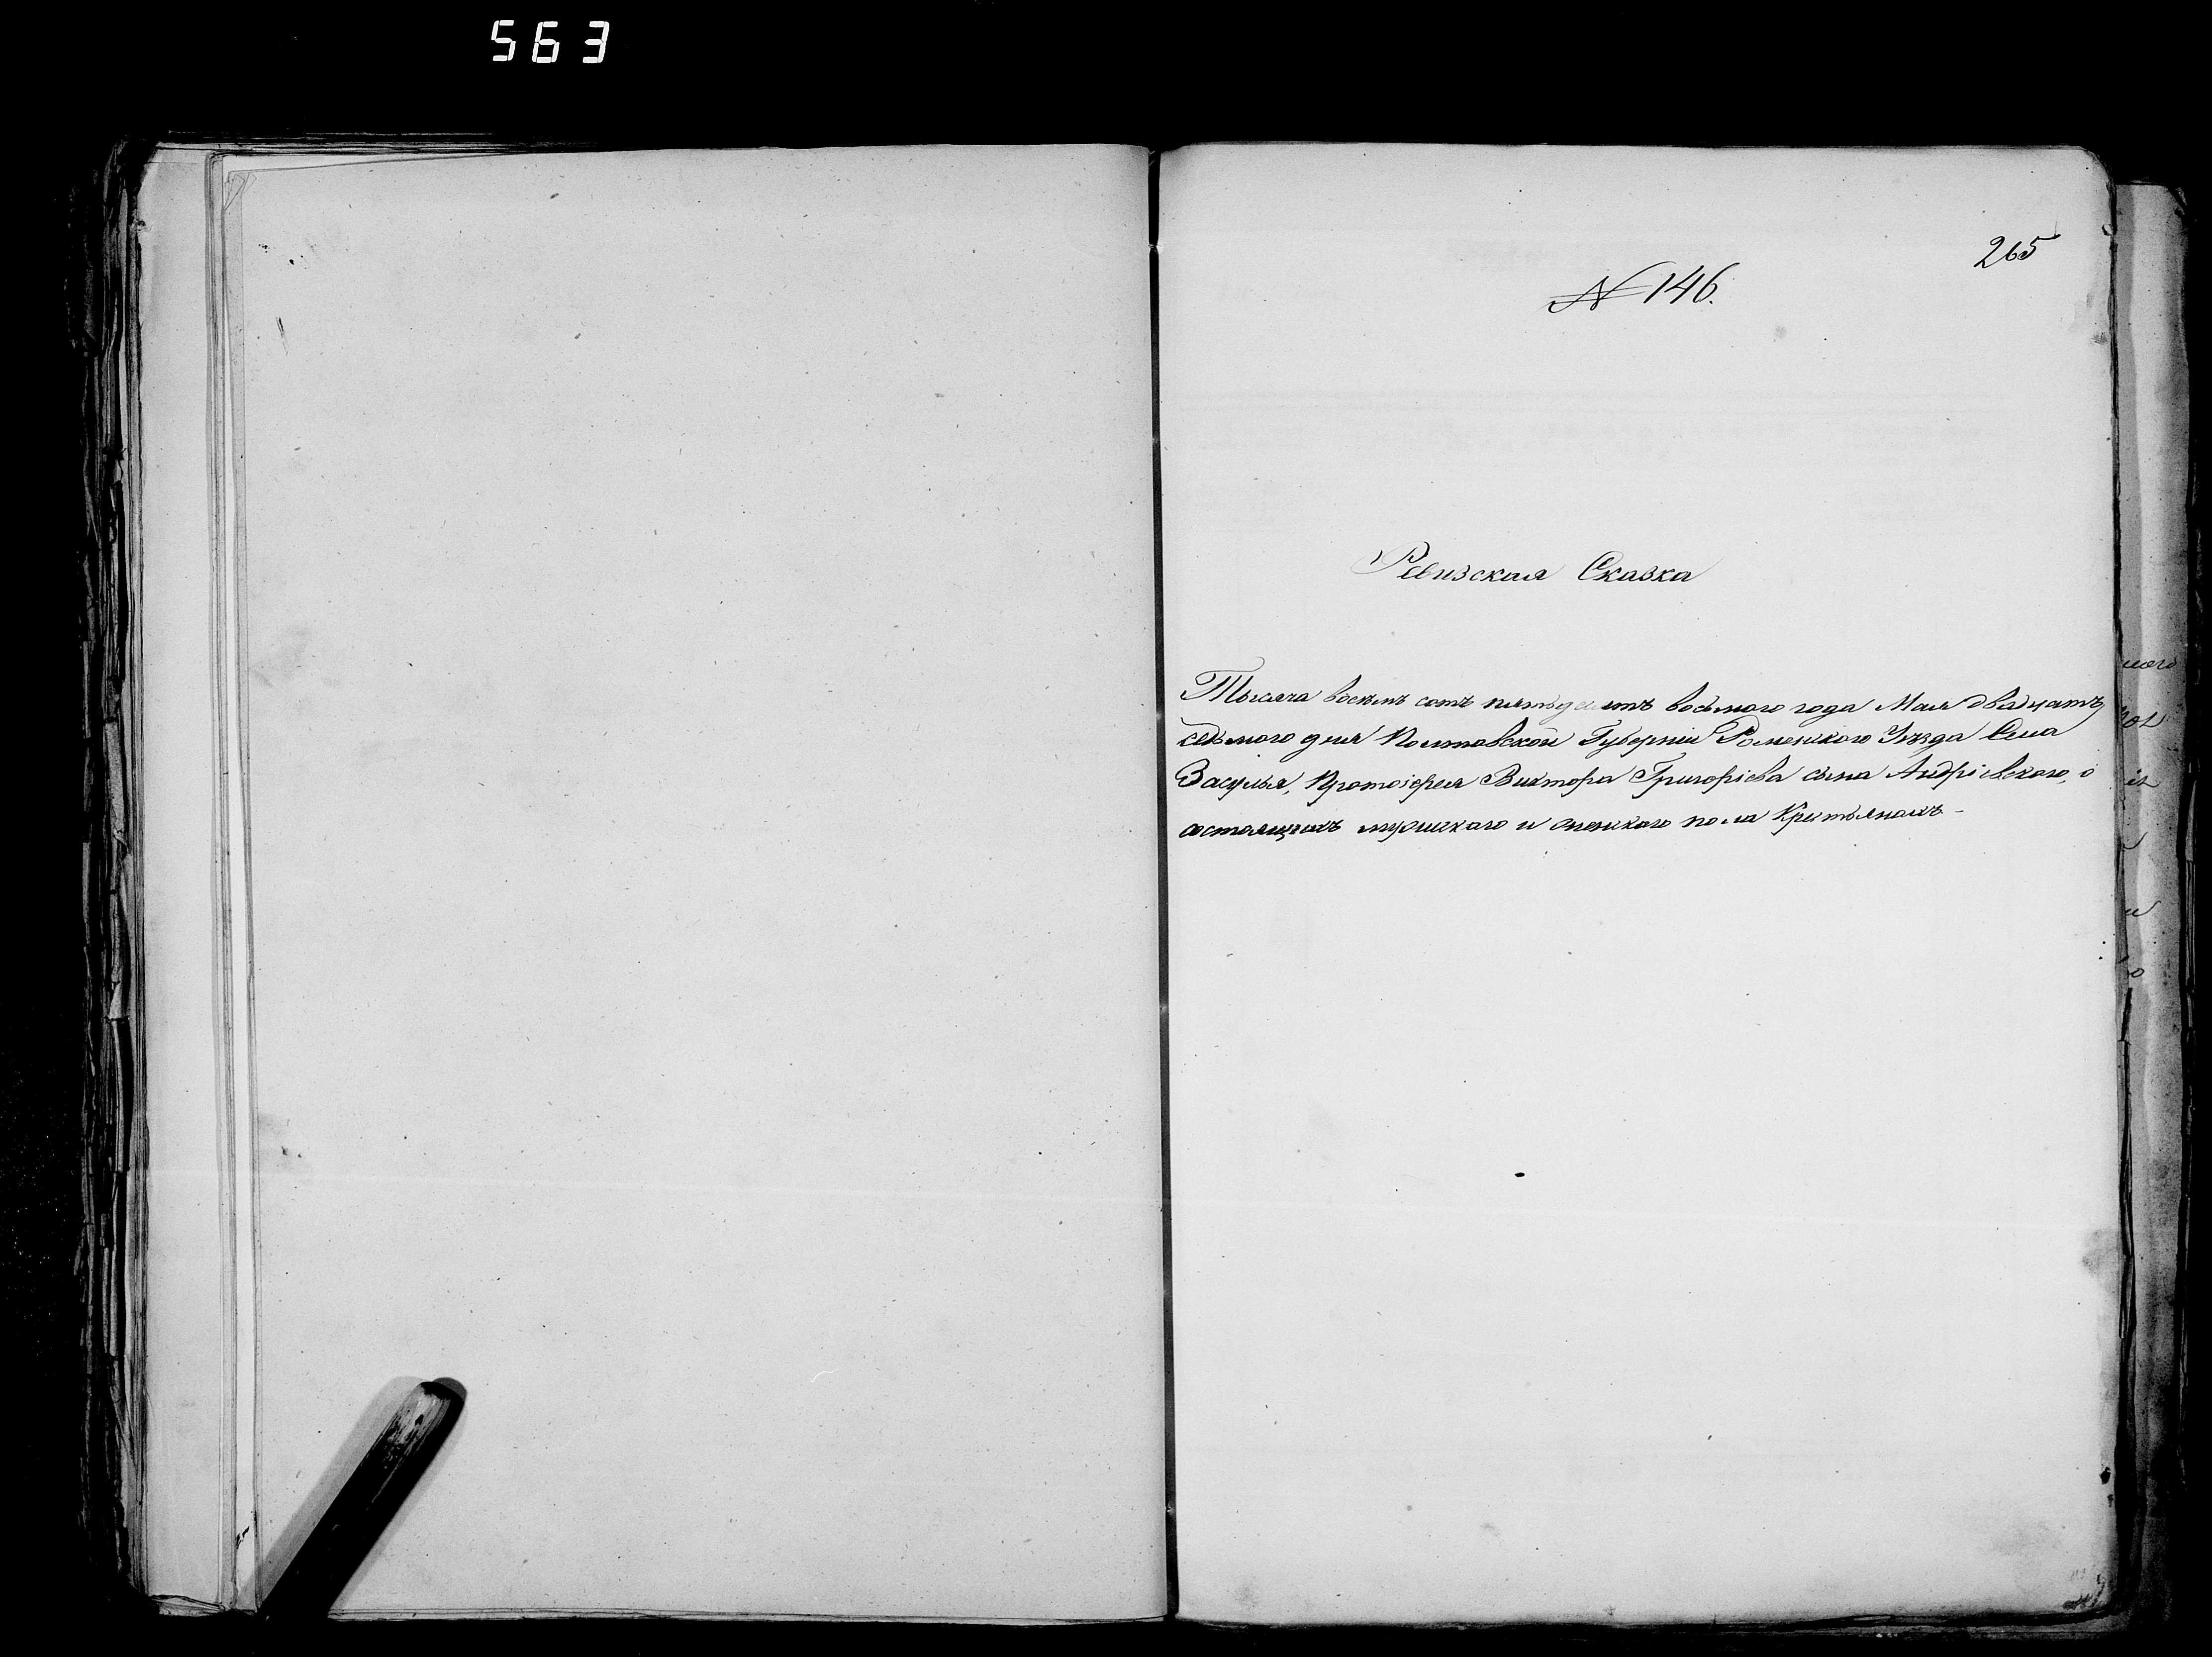 563
265
№ 146.
Ревизская Сказка
Тысяча восемь сотъ пятьдесятъ восьмого года Мая двадцать
седьмого дня Полтавской Губерніи Роменского Уѣзда Села
Засулья, Протоіерея Виктора Григоріева сына Андріевского, о
состоящихъ мужискаго и женскаго пола Крестьянахъ